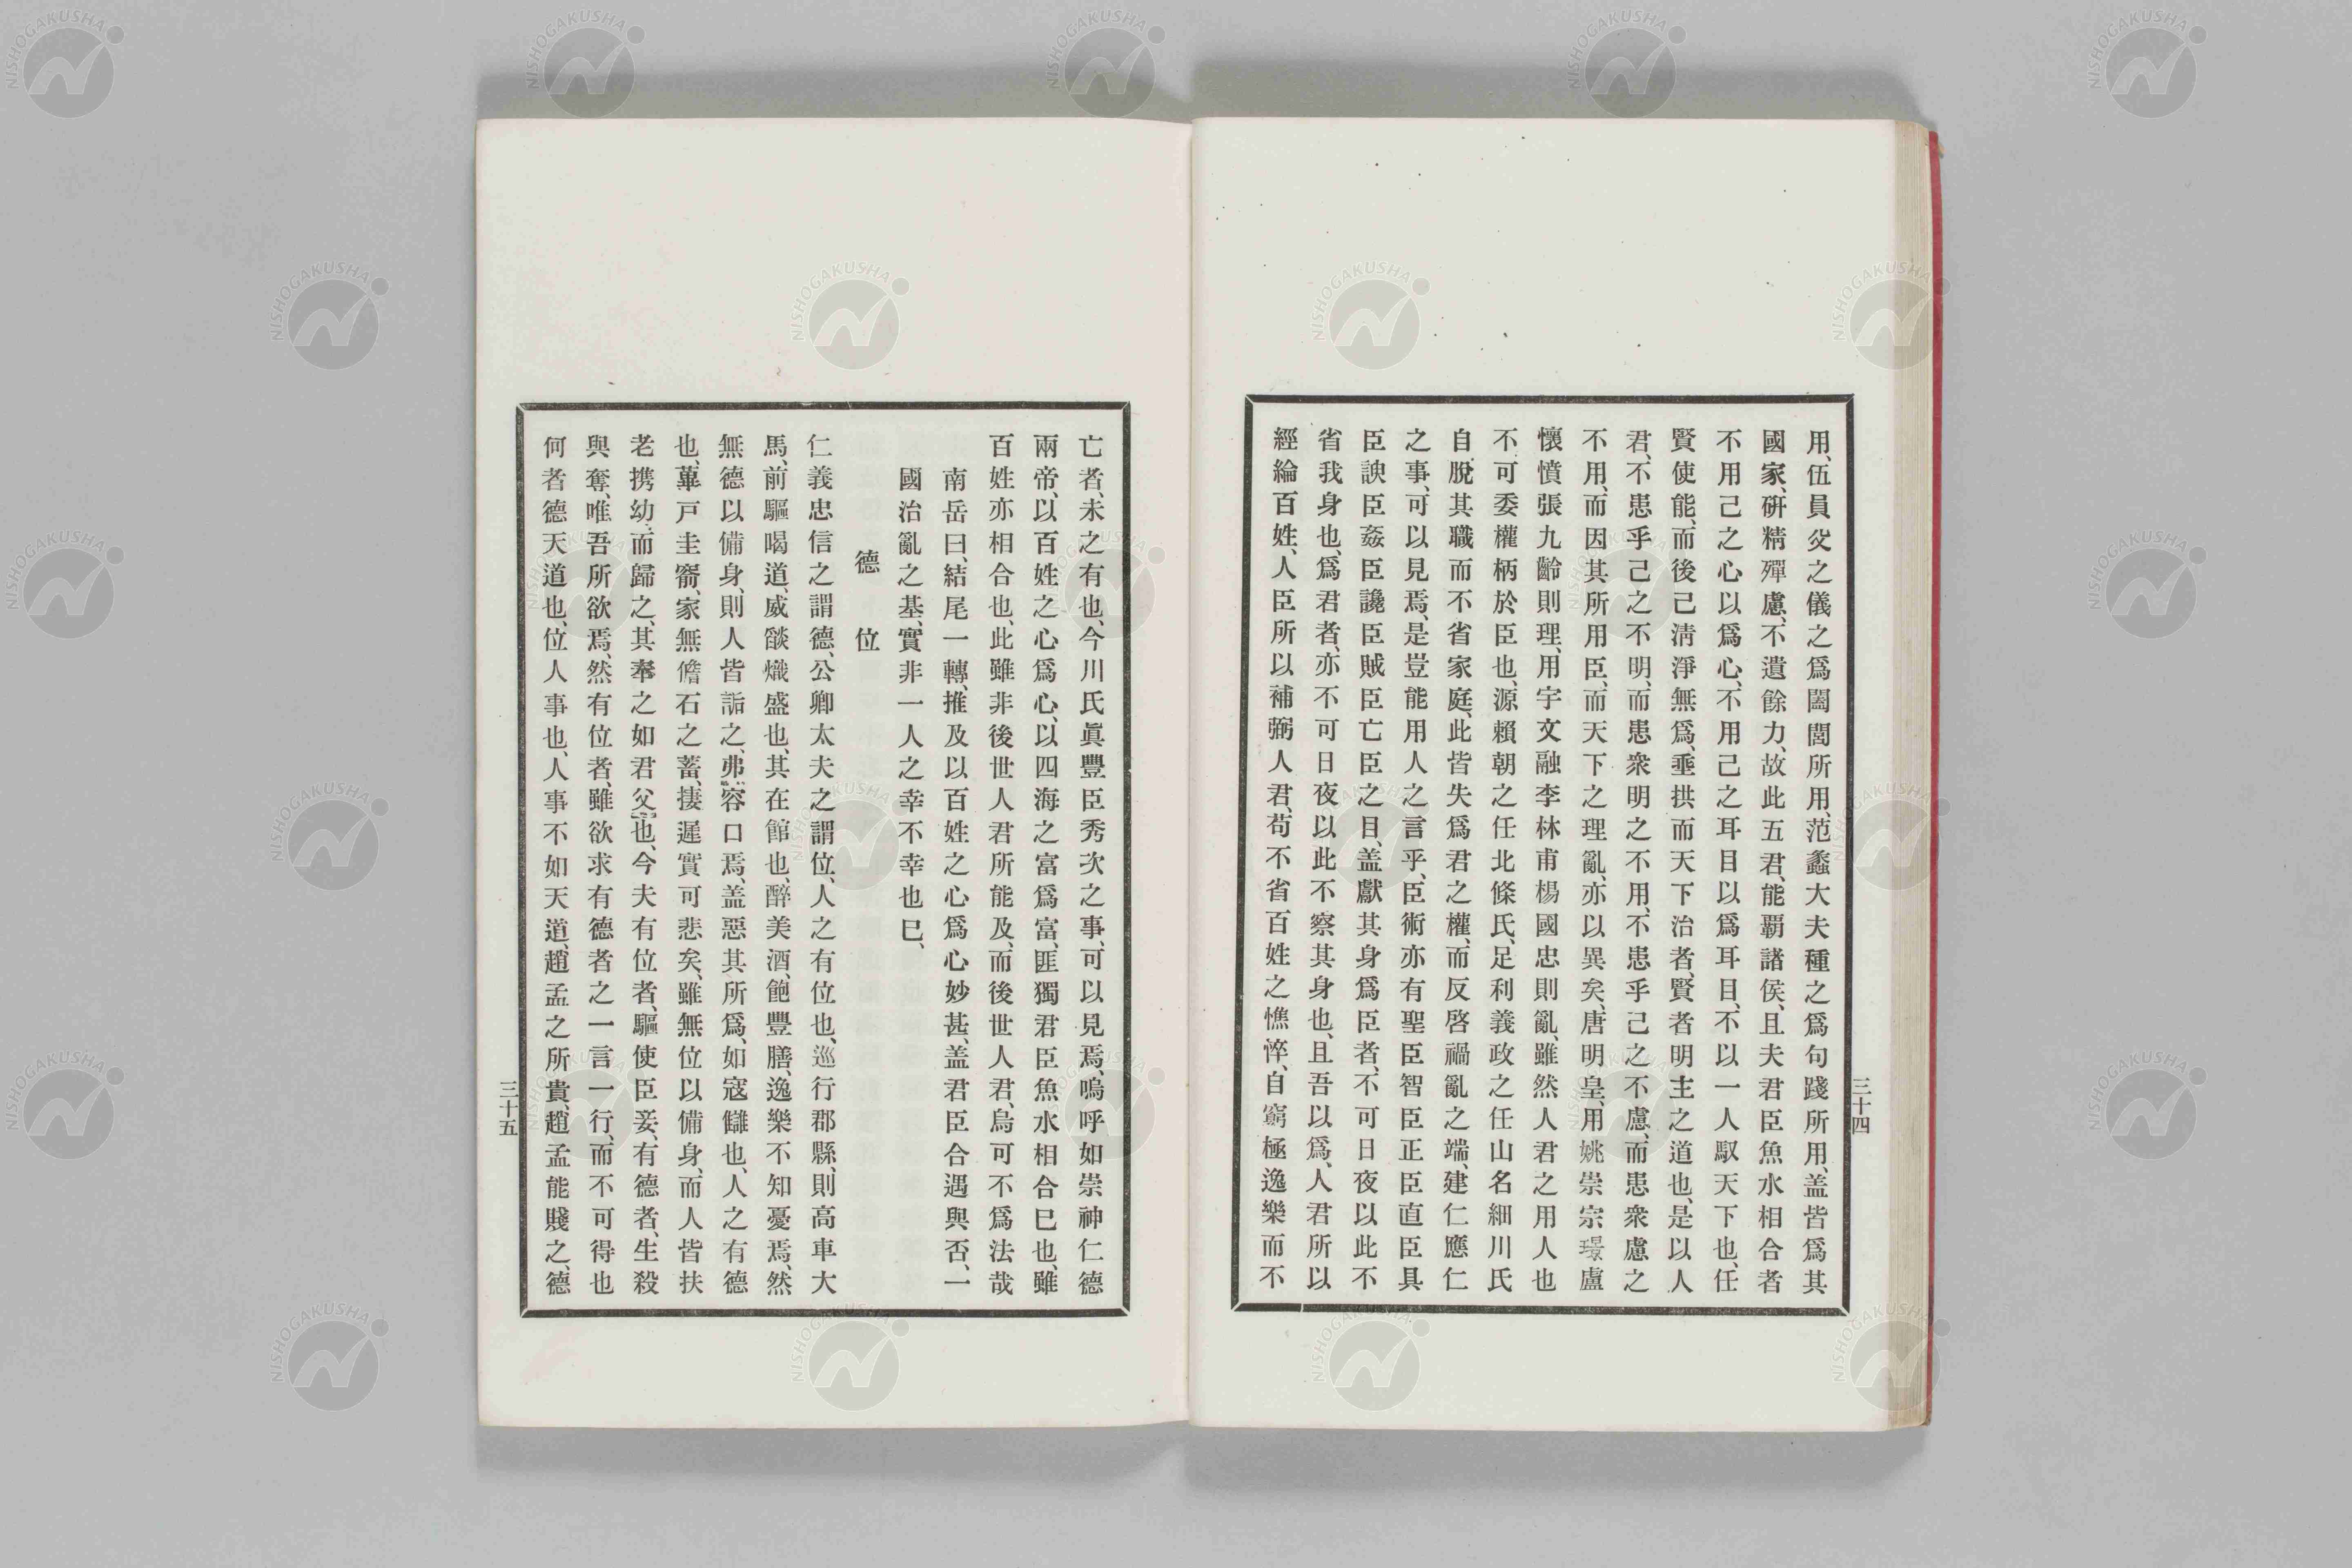 用、伍員炎之儀之爲闔閭所用、范蠡大夫種之爲句踐所用、盖皆爲其
國家、硏精殫慮、不遺餘力、故此五君、能覇諸侯、且夫君臣魚水相合者
不用己之心以爲心、不用己之耳目以爲耳目、不以一人馭天下也、任
賢使能、而後己淸淨無爲、垂拱而天下治者、賢者明主之道也、是以人
君、不患乎己之不明、而患衆明之不用、不患乎己之不慮、而患衆慮之
不用、而因其所用臣、而天下之理亂、亦以異矣、唐明皇、用姚崇宗璟盧
懷愼張九齡則理、用宇文融李林甫楊國忠則亂、雖然人君之用人也
不可委權柄於臣也、源賴朝之任北條氏、足利義政之任山名細川氏
自脫其職而不省家庭、此皆失爲君之權、而反啓禍亂之端、建仁應仁
之事、可以見焉、是豈能用人之言乎、臣術亦有聖臣智臣正臣直臣具
臣諛臣姦臣讒臣賊臣亡臣之目、盖獻其身爲臣者、不可日夜以此不
省我身也、爲君者、亦不可日夜以此不察其身也、且吾以爲、人君所以
經綸百姓、人臣所以補弼人君、苟不省百姓之憔悴、自窮極逸樂而不
三十四
亡者、未之有也、今川氏眞豐臣秀次之事、可以見焉、嗚呼如崇神仁德
兩帝、以百姓之心爲心、以四海之富爲富、匪獨君臣魚水相合巳也、雖
百姓亦相合也、此雖非後世人君所能及、而後世人君、烏可不爲法哉
南岳曰、結尾一轉、推及以百姓之心爲心妙甚、盖君臣合遇與否、一
國治亂之基、實非一人之幸不幸也巳、
德位
仁義忠信之謂德、公卿太夫之謂位、人之有位也、巡行郡縣、則高車大
馬、前驅喝道、威燄熾盛也、其在館也、醉美酒、飽豐膳、逸樂不知憂焉、然
無德以備身、則人皆詬之、弗容口焉、盖惡其所爲、如寇讎也、人之有德
也、蓽戶圭窬、家無儋石之蓄、捿遲實可悲矣、雖無位以備身、而人皆扶
老携幼、而歸之、其奉之如君父也、今夫有位者、驅使臣妾、有德者、生殺
與奪、唯吾所欲焉、然有位者、雖欲求有德者之一言一行、而不可得也
何者德天道也、位人事也、人事不如天道、趙孟之所貴、趙孟能賤之、德
三十五